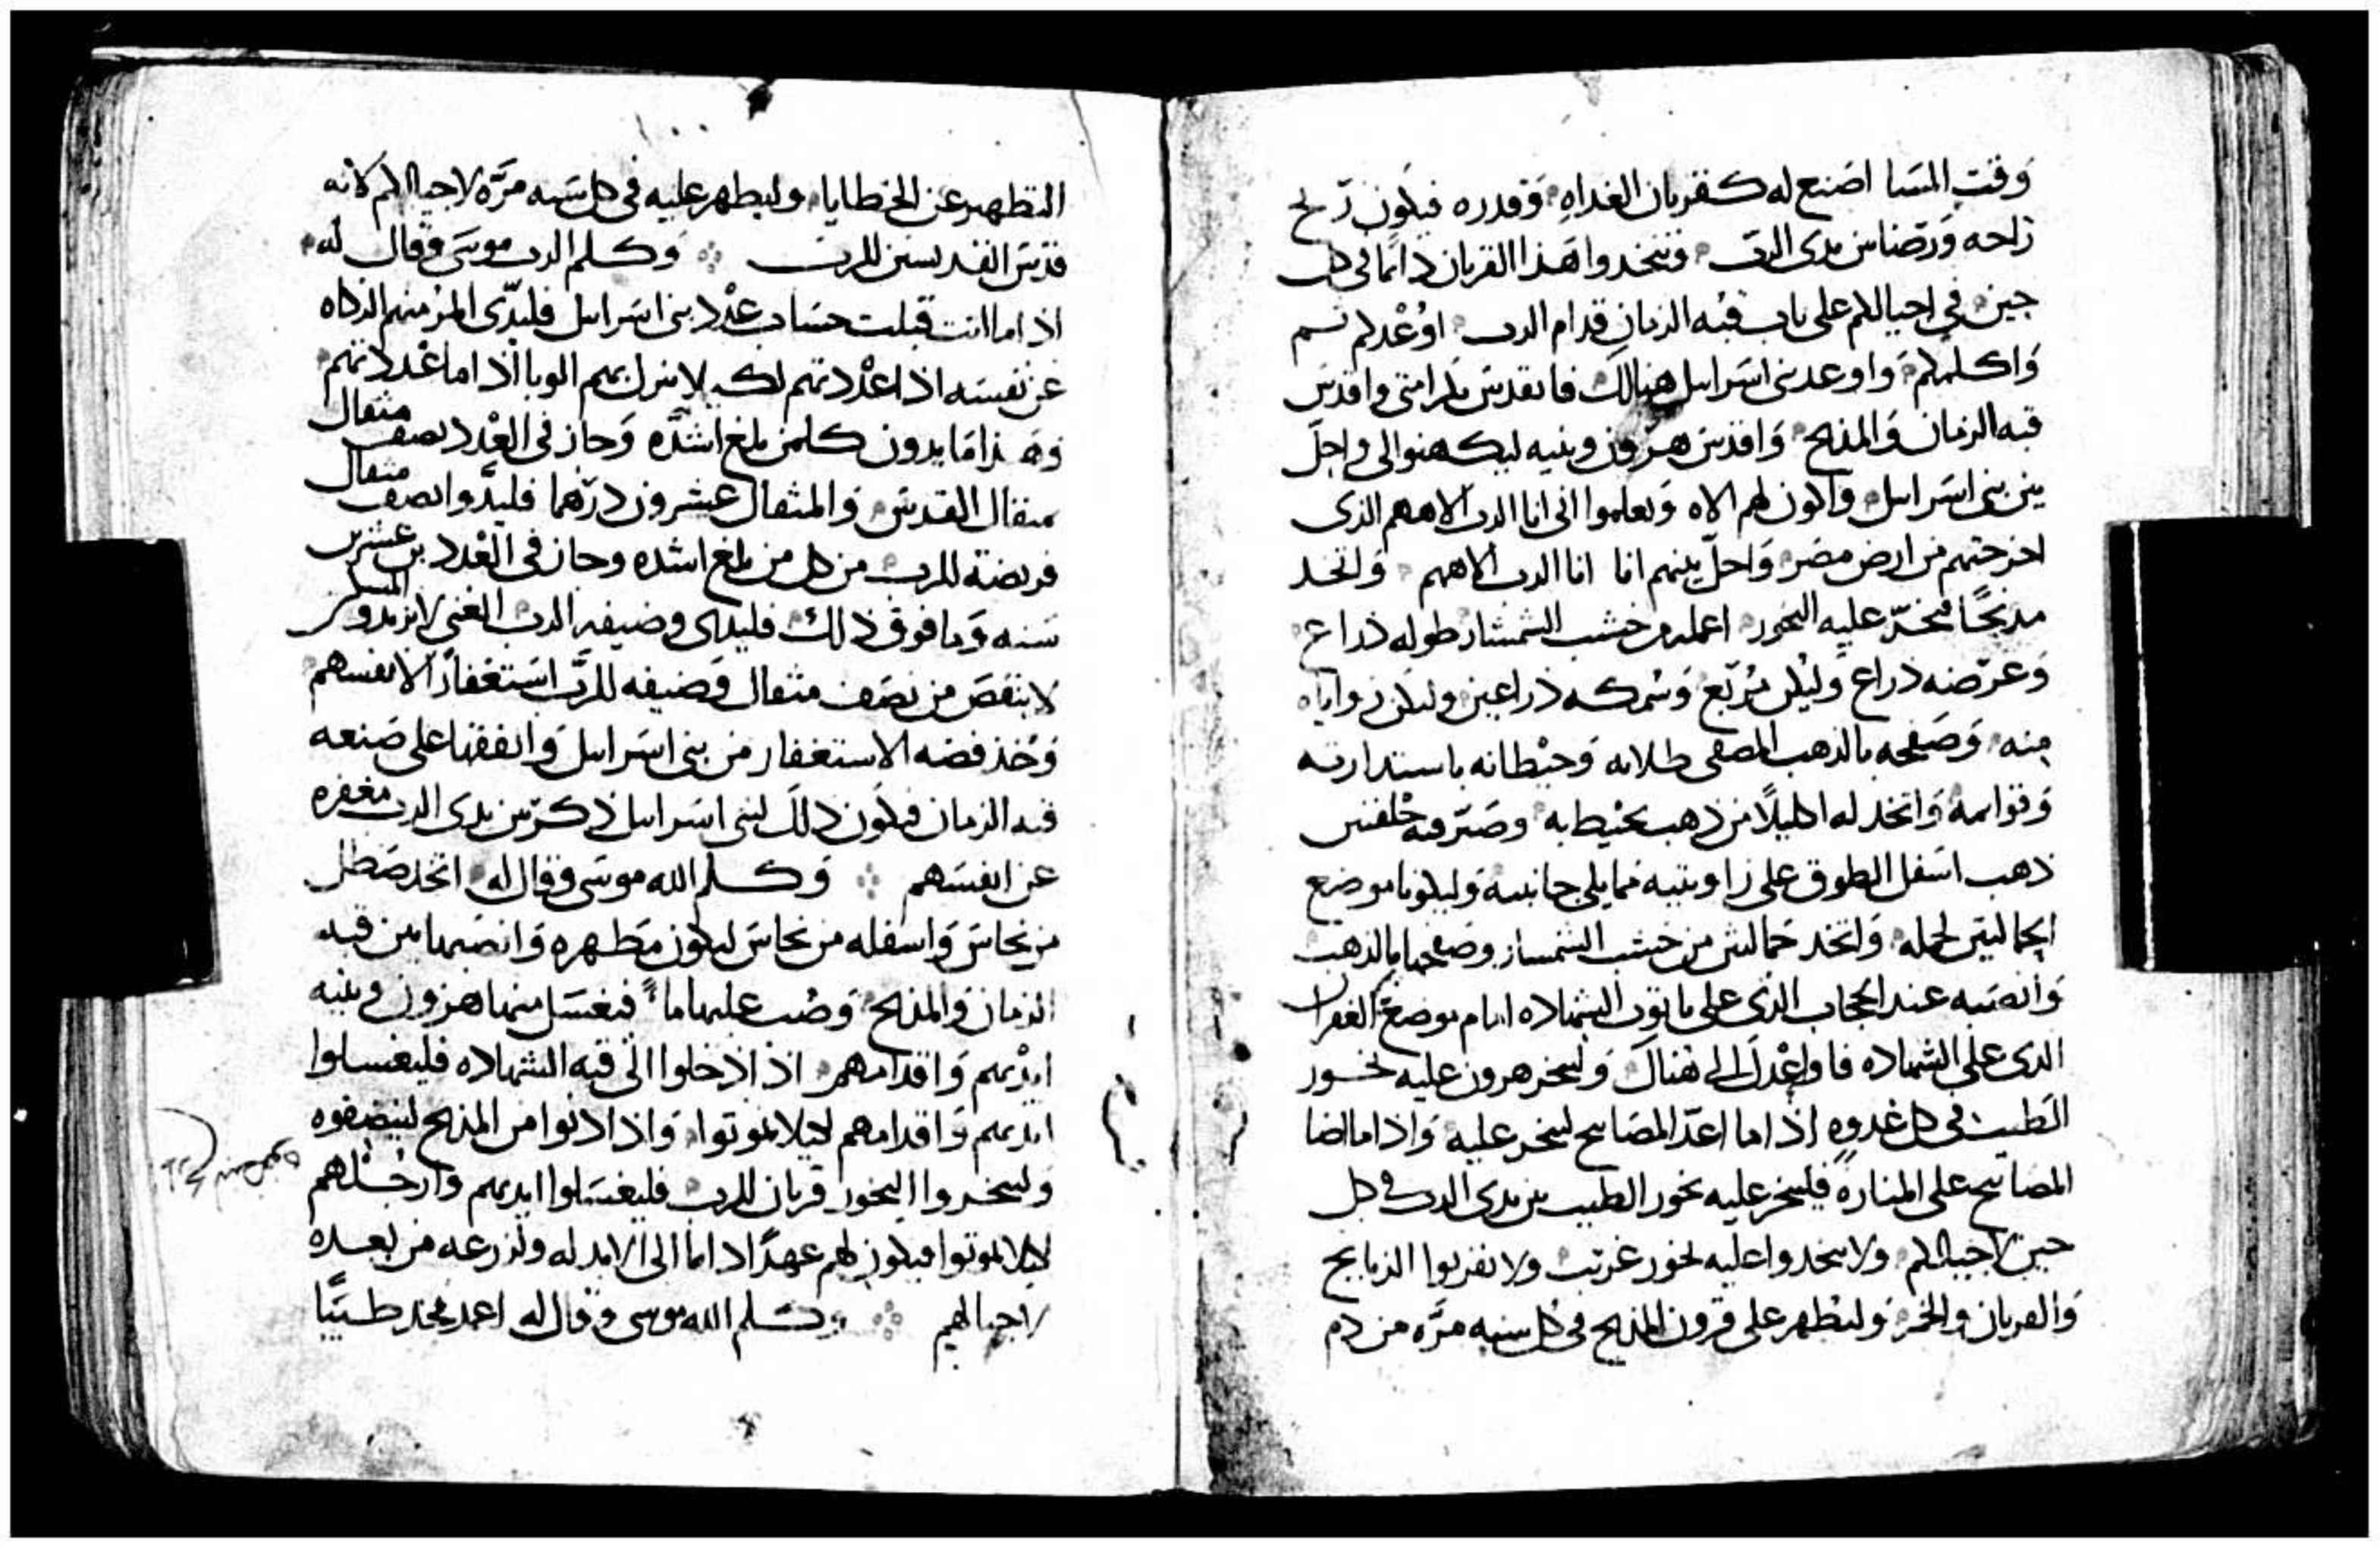 وقت المسا اصنع له كقربان الغداه وقدره فيكون ريح
راحه ورضا بين يدى الرب فتتخدوا هذا القربان دايما فى كل
حين فى احيالكم على باب قبه الزمان قدام الرب اوعدكم ثم
واكلمكم واوعد بنى اسرايل هنالك فاتقدس بكرامتى واقدس
قبه الزمان والمذبح واقدس هرون وبنيه ليكهنوا لى واحل
بين بنى اسرايل واكون لهم الاه وتعلموا انى انا الرب الاههم الذى
اخرجتهم من ارض مصر واحل بينهم انا انا الرب الاههم واتخد
مذبحا تبخر عليه البخور اعمله من خشب الشمشار طوله ذراع
وعرضه ذراع وليكن مربع وسمكه ذراعين وليكن زواياه
منه وصفحه بالذهب المصفى طلايه وحيطانه باستدارته
وقوايمه واتخد له اكليلا من ذهب يحيط به وصير فيه حلقتين
ذهب اسفل الطوق على زاويتيه مما يلى جانبيه وليكونا موضع
الحمالتين لحمله واتخد حمالتين من خشب الشمسار وصفحها بالذهب
وانصبه عند الحجاب الذى على تابوت الشهاده امام موضع الغفران
الذى على الشهاده فاواعدك الى هناك وليبخر هرون عليه بخور
الطيب فى كل غدوه اذ اما اعد المصابيح ليبخر عليه واذا ما اضا
المصابيح على المناره فليبخر عليه بخور الطيب بين يدى الرب فى كل
حين لاحيالكم ولا تتخدوا عليه بخور غريب ولا تقربوا الذبايح
والقربان والخمر وليطهر على قرون المذبح فى كل سنه مره من دم
التطهير عن الخطايا وليطهر عليه فى كل سنه مره لاحيالكم لانه
قدس القديسين للرب وكلم الرب موسى وقال له
اذ اما انت قبلت حساب عدد بنى اسرايل فليدى المر منهم الزكاه
عن نفسه اذا عددتهم لك لا ينزل بهم الوبا اذ اما عددتهم
وهذا ما يدون كلمن بلغ اشده وجاز فى العدد نصف مثقال
مثقال القدس والمثقال عشرون درهما فليدوا نصف مثقال
فريضة للرب من كل من بلغ اشده وجاز فى العدد بن عشرين
سنه وما فوق ذلك فليدى وضيفه الرب الغنى لا يزيد والمسكين
لا ينقص من نصف مثقال وضيفه للرب استغفارا لانفسهم
وخذ فضه الاستغفار من بنى اسرايل وانفقها على صنعه
قبه الزمان فيكون ذلك لبنى اسرايل ذكر بين يدى الرب مغفره
عن انفسهم وكلم الله موسى وقال له اتخد صطل
من نحاس واسفله من نحاس ليكون مطهره وانصبها بين قبه
الزمان والمذبح وصب عليها ما فيغسل منها هرون وبنيه
ايديهم واقدامهم اذ اذ خلوا الى قبه الشهاده فليغسلوا
ايديهم واقدامهم ليلا يموتوا واذا ادنوا من المذبح لينضفوه
وليبخروا البخور قربان للرب فليغسلوا ايديهم وارجلهم
ليلا يموتوا فيكون لهم عهدا دايما الى الابد له ولزرعه من بعده
لاجيالهم وكلم الله موسى وقال له اعمد فخد طيبا